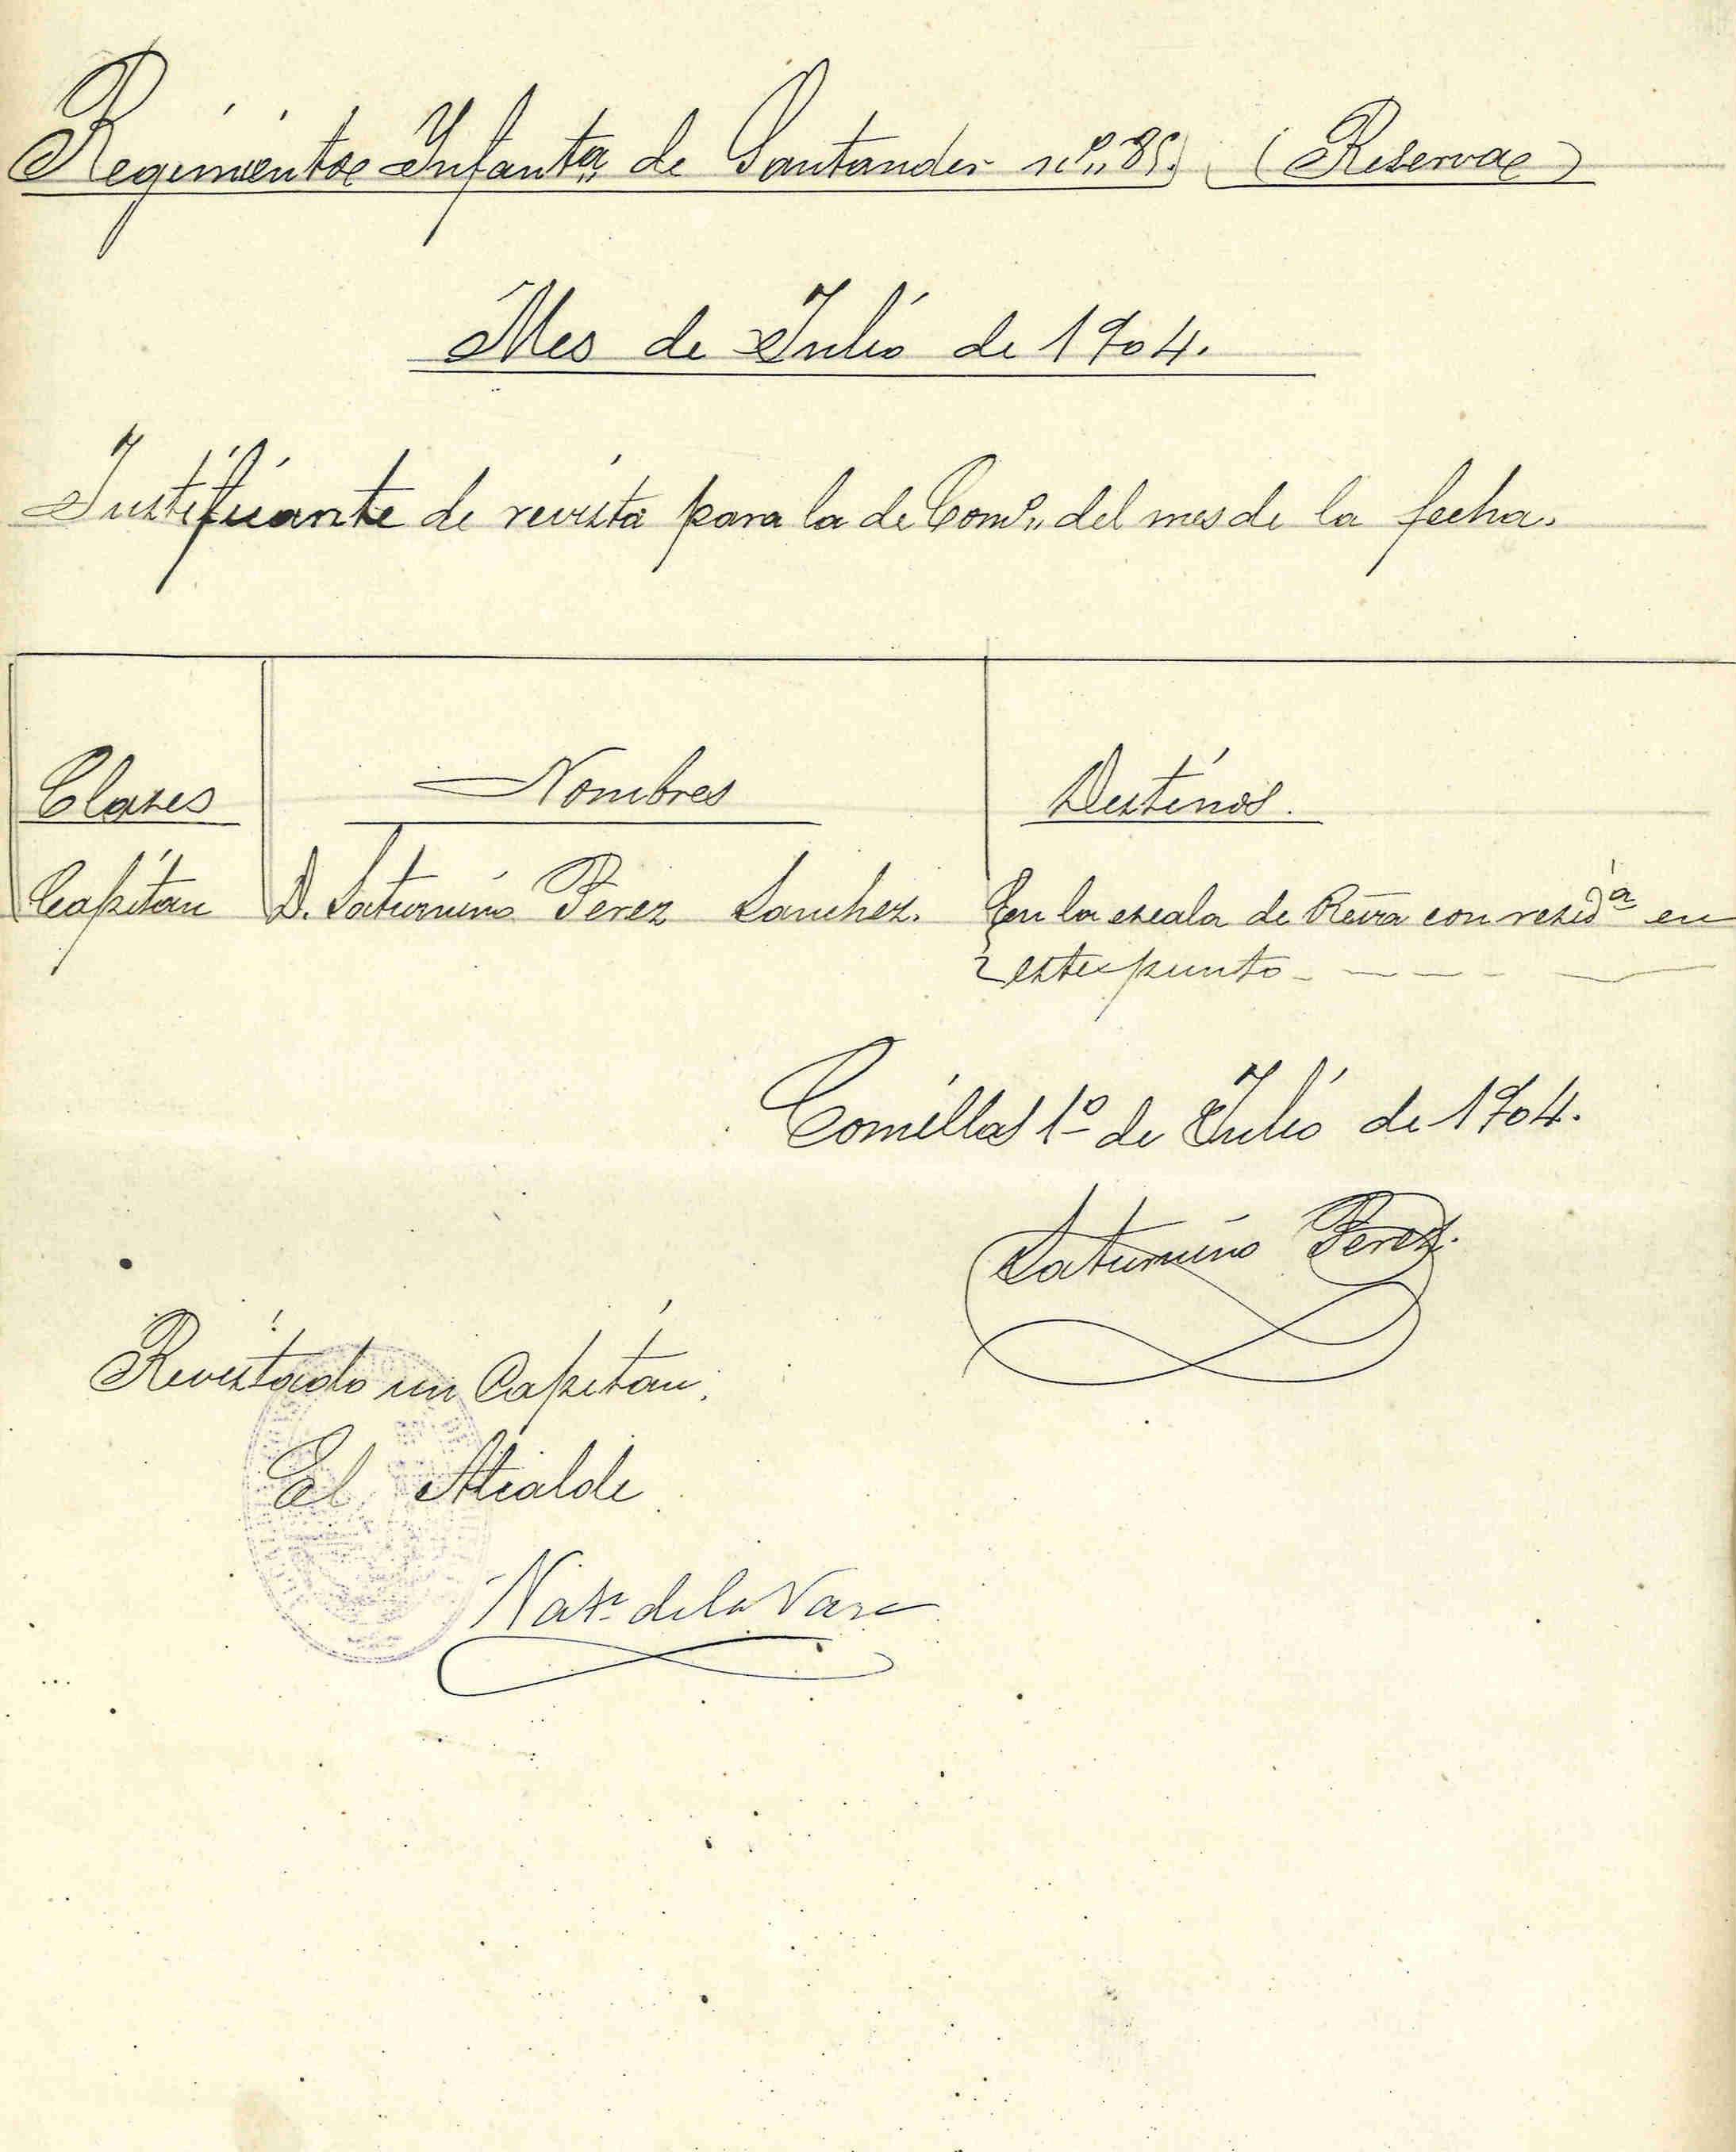 Regimiento Infantª de Santander nº 85. (Reserva)
Mes de Julio de 1904.
Justificante de revista para la de Comº del mes de la fecha.
Clases Nombres Destinos.
Capitan D. Saturnino Perez Sanchez. En la escala de Rva con residª en
este punto
Comillas 1º de Julio de 1904.
Saturnino Perez.
Revistado un Capitan.
El Alcalde
de la Vara